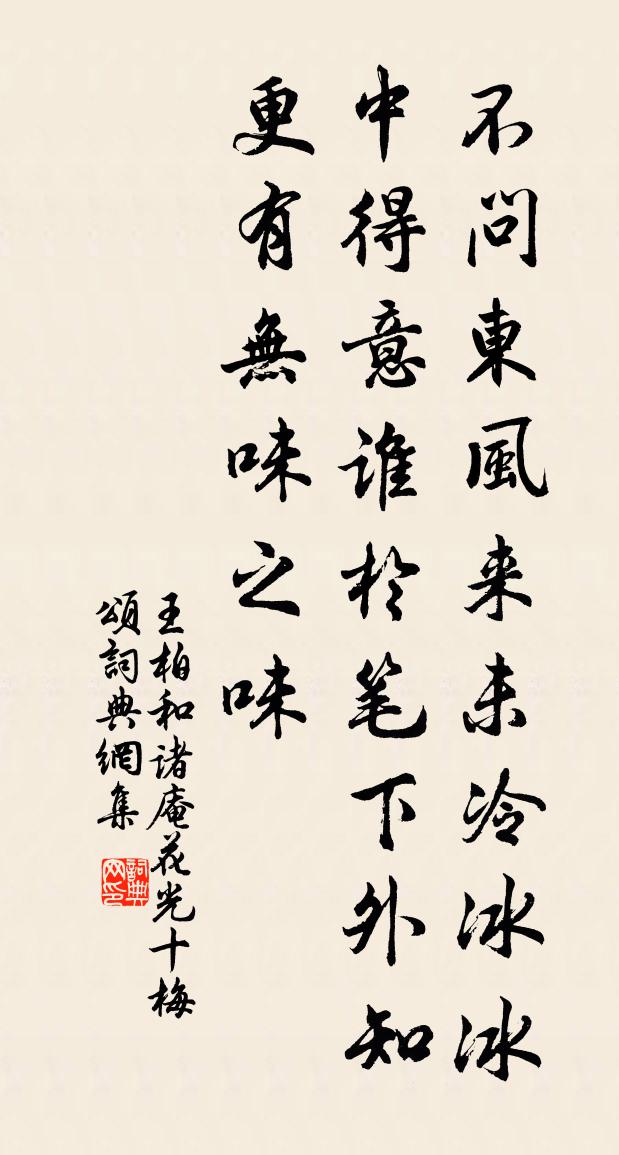 不問東風来未冷冰冰
中得意誰於笔下外知
更有無味之味
王柏和诸庵花光十梅
頌詞典網集
詞典網印